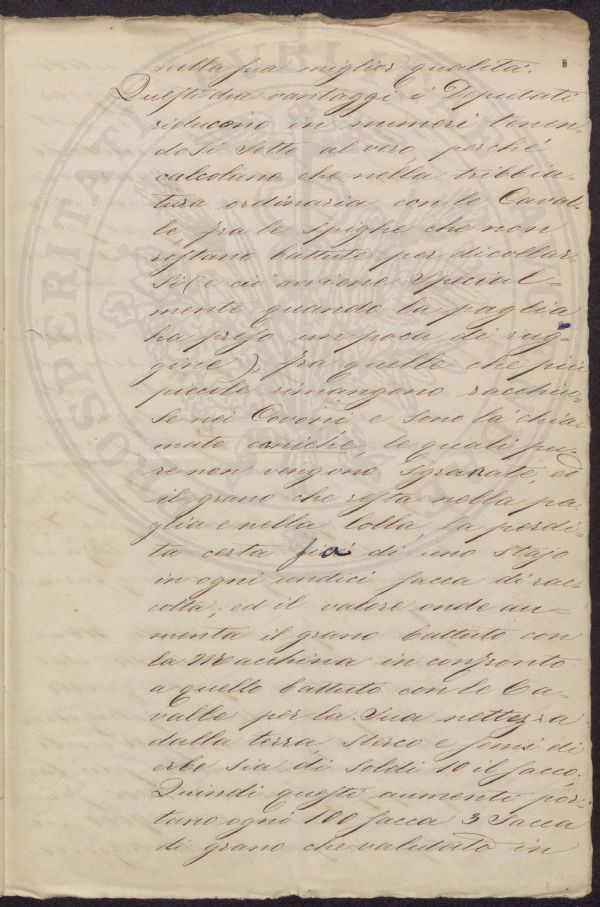 sulla sua miglior qualità.
Questi due vantaggi i Deputati
riducono in numeri tenen-
dosi sotto al vero, perchè
calcolano che nella tribbia-
tura ordinaria con le Caval-
le fra le spighe che non
restano battute per dicollar
si (e ciò avviene special-
mente quando la paglia
ha preso un poca di rug-
gine), fra quelle che più
piccole rimangono racchiu-
se nei Covoni e sono là chia-
mate corniche, le quali pu-
re non vengono sgranate, ed
il grano che resta nella pa-
glia e nella lolla, la perdi-
ta certa sia di uno stajo
in ogni undici sacca di rac-
colta; ed il valore onde au-
menta il grano battuto con
la Macchina in confronto
a quello battuto con le Ca-
valle per la sua nettezza
dalla terra, sterco e semi di
erbe sia di soldi 10 il sacco.
Quindi questi aumenti por-
tano ogni 100 sacca 3 sacca
di grano che valutato in
PROSPERITATI PUBLICAE